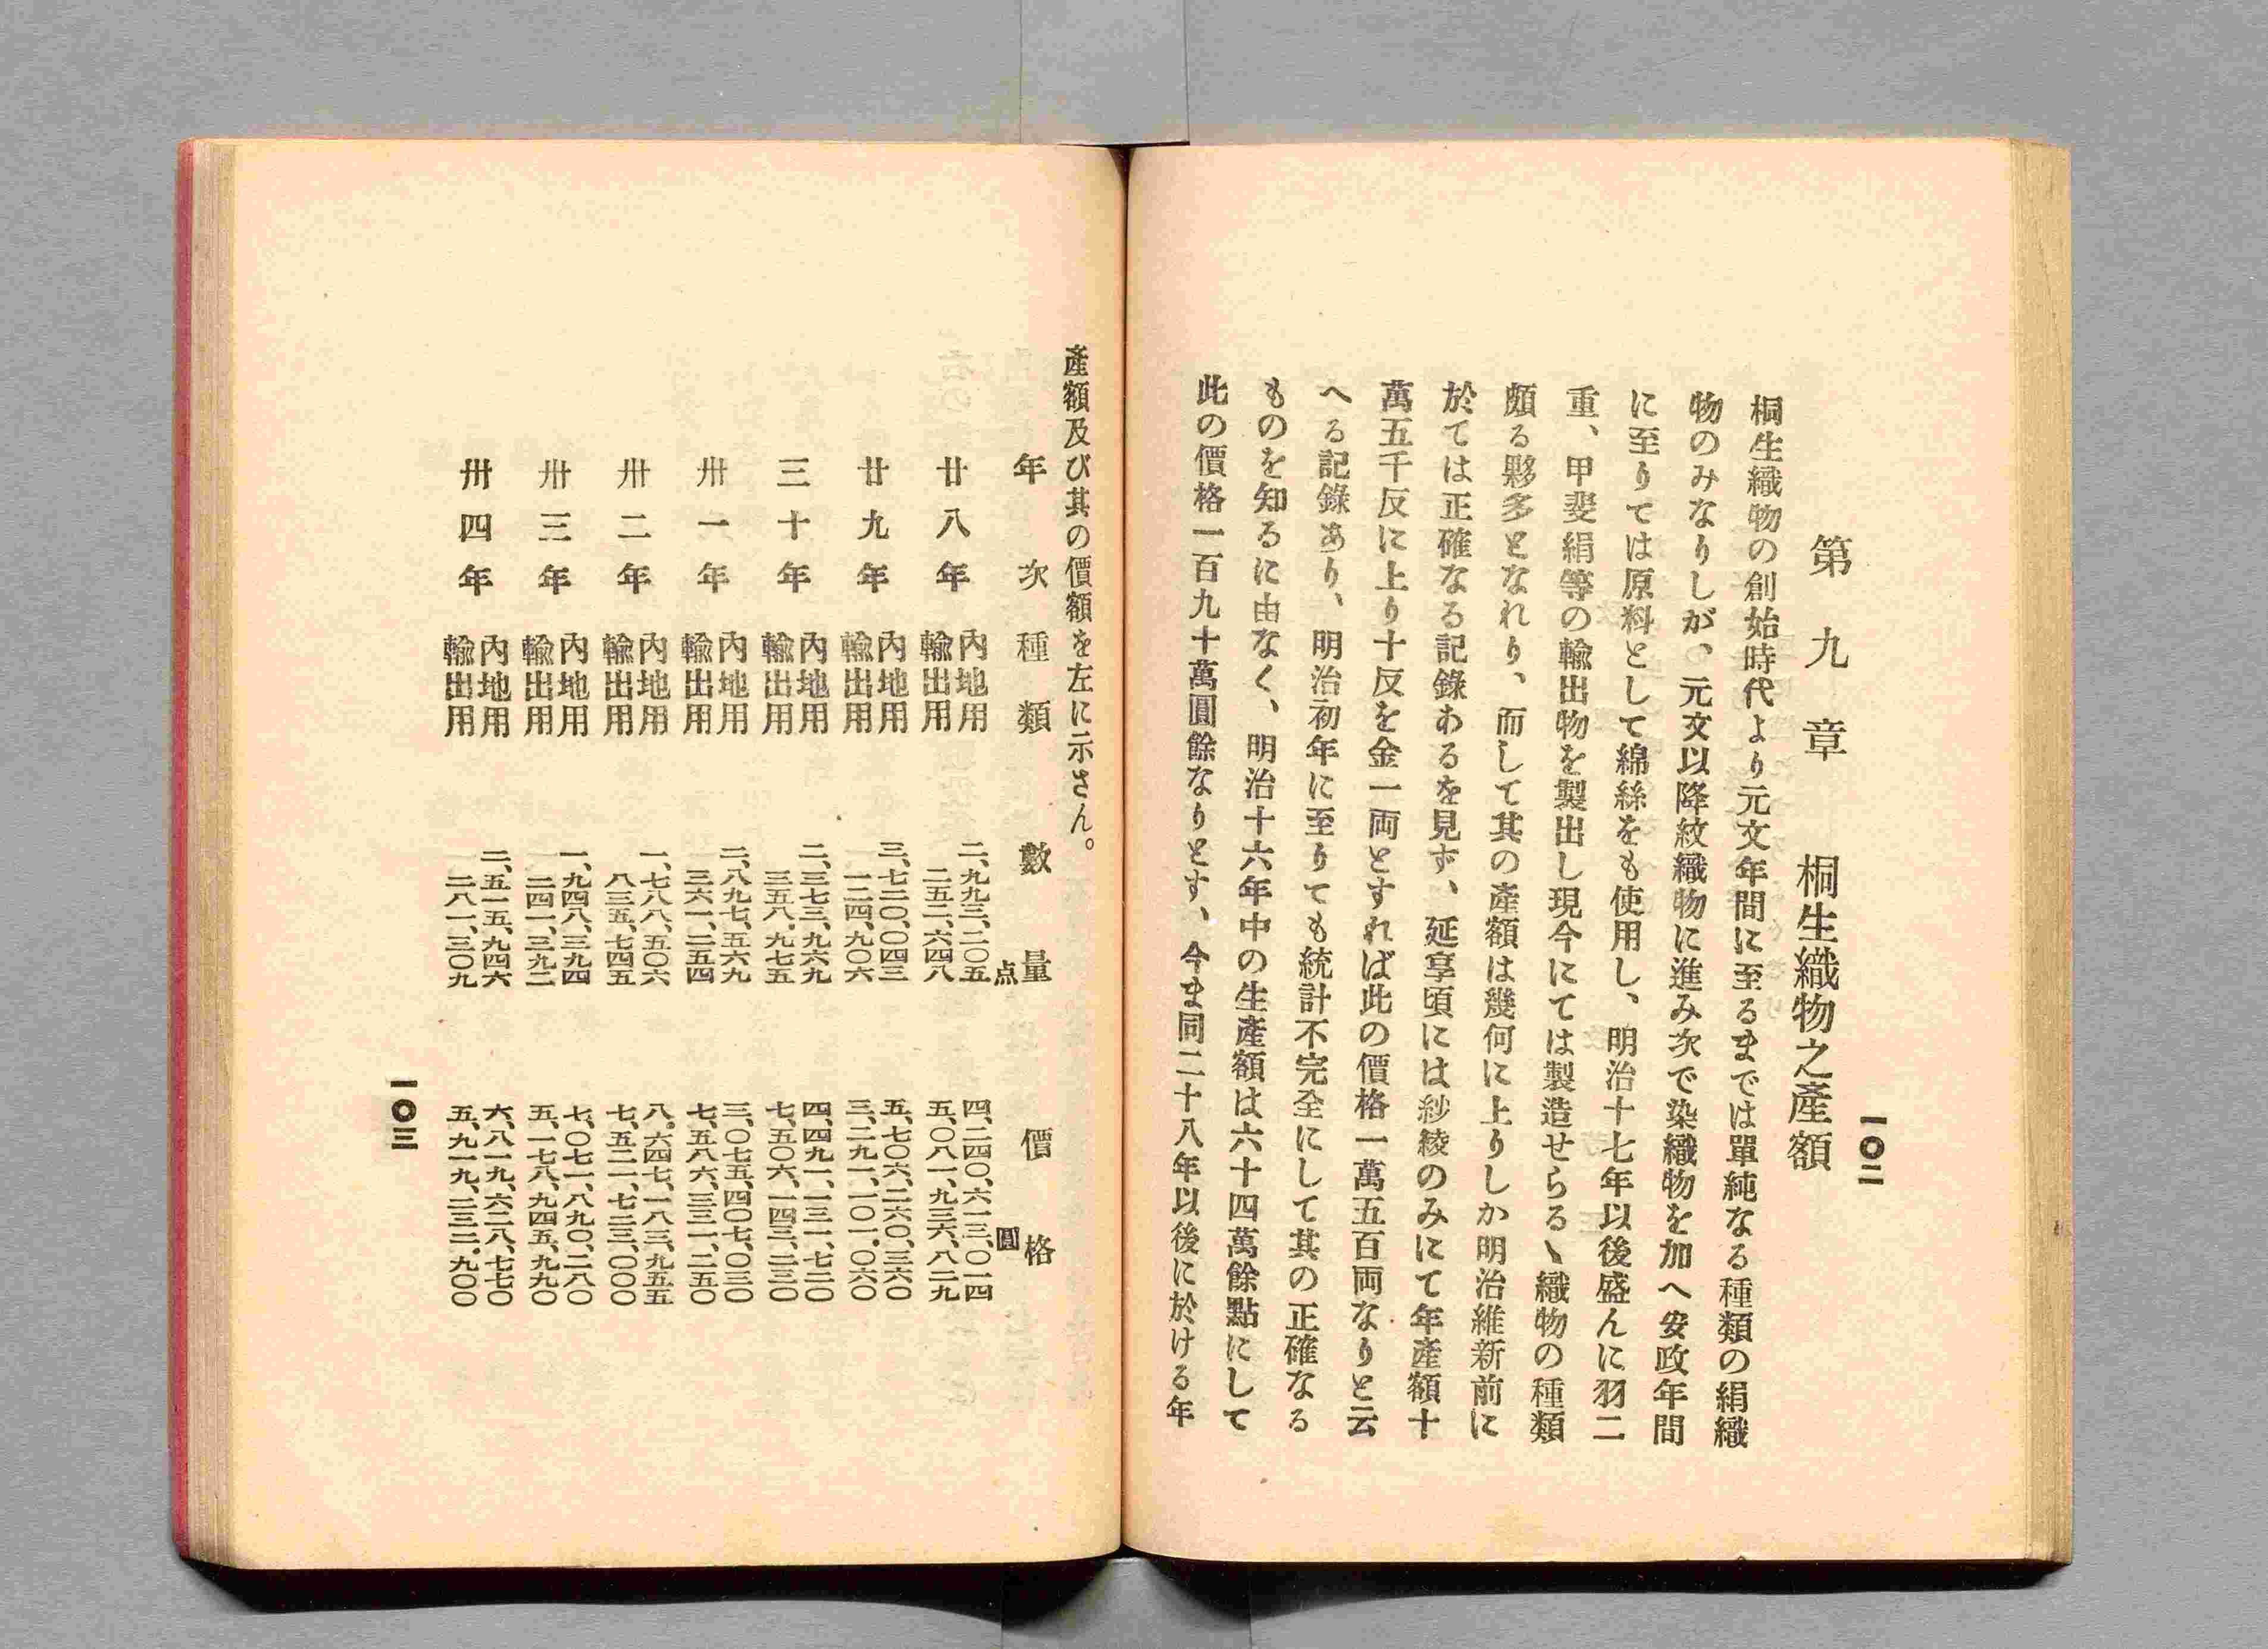 一〇二
第九章　桐生織物之產額
桐生織物の創始時代より元文年間に至るまでは單純なる種類の絹織
物のみなりしが、元文以降紋織物に進み次で染織物を加へ安政年間
に至りては原料として綿絲をも使用し、明治十七年以後盛んに羽二
重、甲斐絹等の輸出物を製出し現今にては製造せらるゝ織物の種類
頗る夥多となれり、而して其の產額は幾何に上りしか明治維新前に
於ては正確なる記錄あるを見ず、延享頃には紗綾のみにて年產額十
萬五千反に上り十反を金一両とすれば此の價格一萬五百両なりと云
へる記錄あり、明治初年に至りても統計不完全にして其の正確なる
ものを知るに由なく、明治十六年中の生產額は六十四萬餘點にして
此の價格一百九十萬圓餘なりとす、今ま同二十八年以後に於ける年
產額及び其の價額を左に示さん。
年次　種類　數量　價格
点　圓
廿八年　內地用　二、九九三、二〇五　四、二四〇、六一三、〇一四
輸出用　二五二、六四八　五、〇八一、九三六、八二九
廿九年　內地用　三、七二〇、〇四三　五、七〇六、二六〇、三六〇
輸出用　一二四、九〇六　三、二九一、一〇一、〇六〇
三十年　內地用　二、三七三、九六九　四、四九一、一三一、七二〇
輸出用　三五八、九七五　七、五〇六、一四三、二三〇
卅一年　內地用　二、八九七、五六九　三、〇七五、四〇七、〇三〇
輸出用　三六一、二五四　七、五八六、三三一、二五〇
卅二年　內地用　一、七八八、五〇六　八、六四七、一八三、九五五
輸出用　八三五、七四五　七、五二一、七二三、〇〇〇
卅三年　內地用　一、九四八、三九四　七、〇七一、八九〇、二八〇
輸出用　二四一、三九二　五、一七八、九四五、九九〇
卅四年　內地用　二、五一五、九四六　六、八一九、六二八、七七〇
輸出用　二八一、三〇九　五、九一九、二三二、九〇〇
一〇三